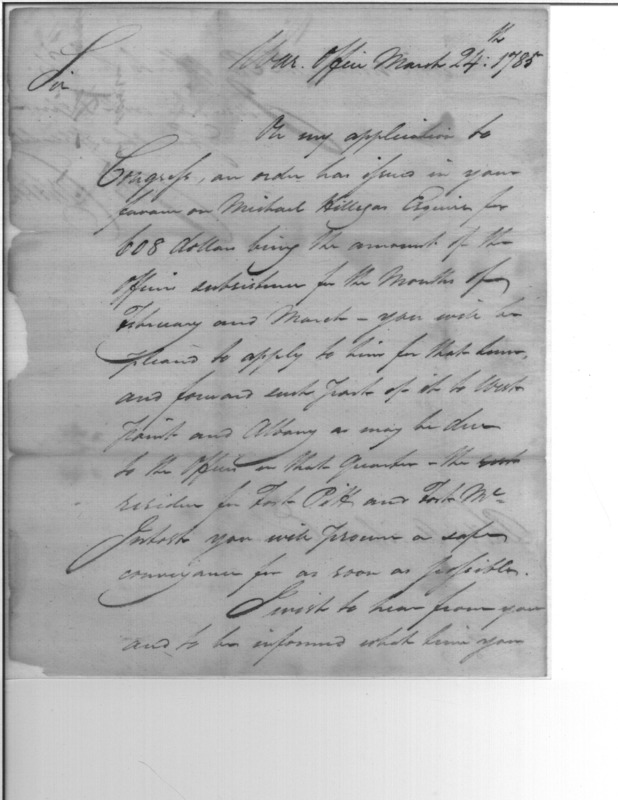 War Office March 24th 1785
Sir
On my application to
Congress, an order has issued in your
favour on Michael Hillegas Esquire for
608 dollars being the amount of the
officers subsistence for the Months of
February and March – you will be
pleased to apply to him for that sum,
and forward such part of it to West
point and Albany as may be due
to the officers in that Quarter – the
residue for Fort Pitt and Fort Mc
Intosh you will procure a safe
conveyance for as soon as possible.
I wish to hear from you
and to be informed what time you